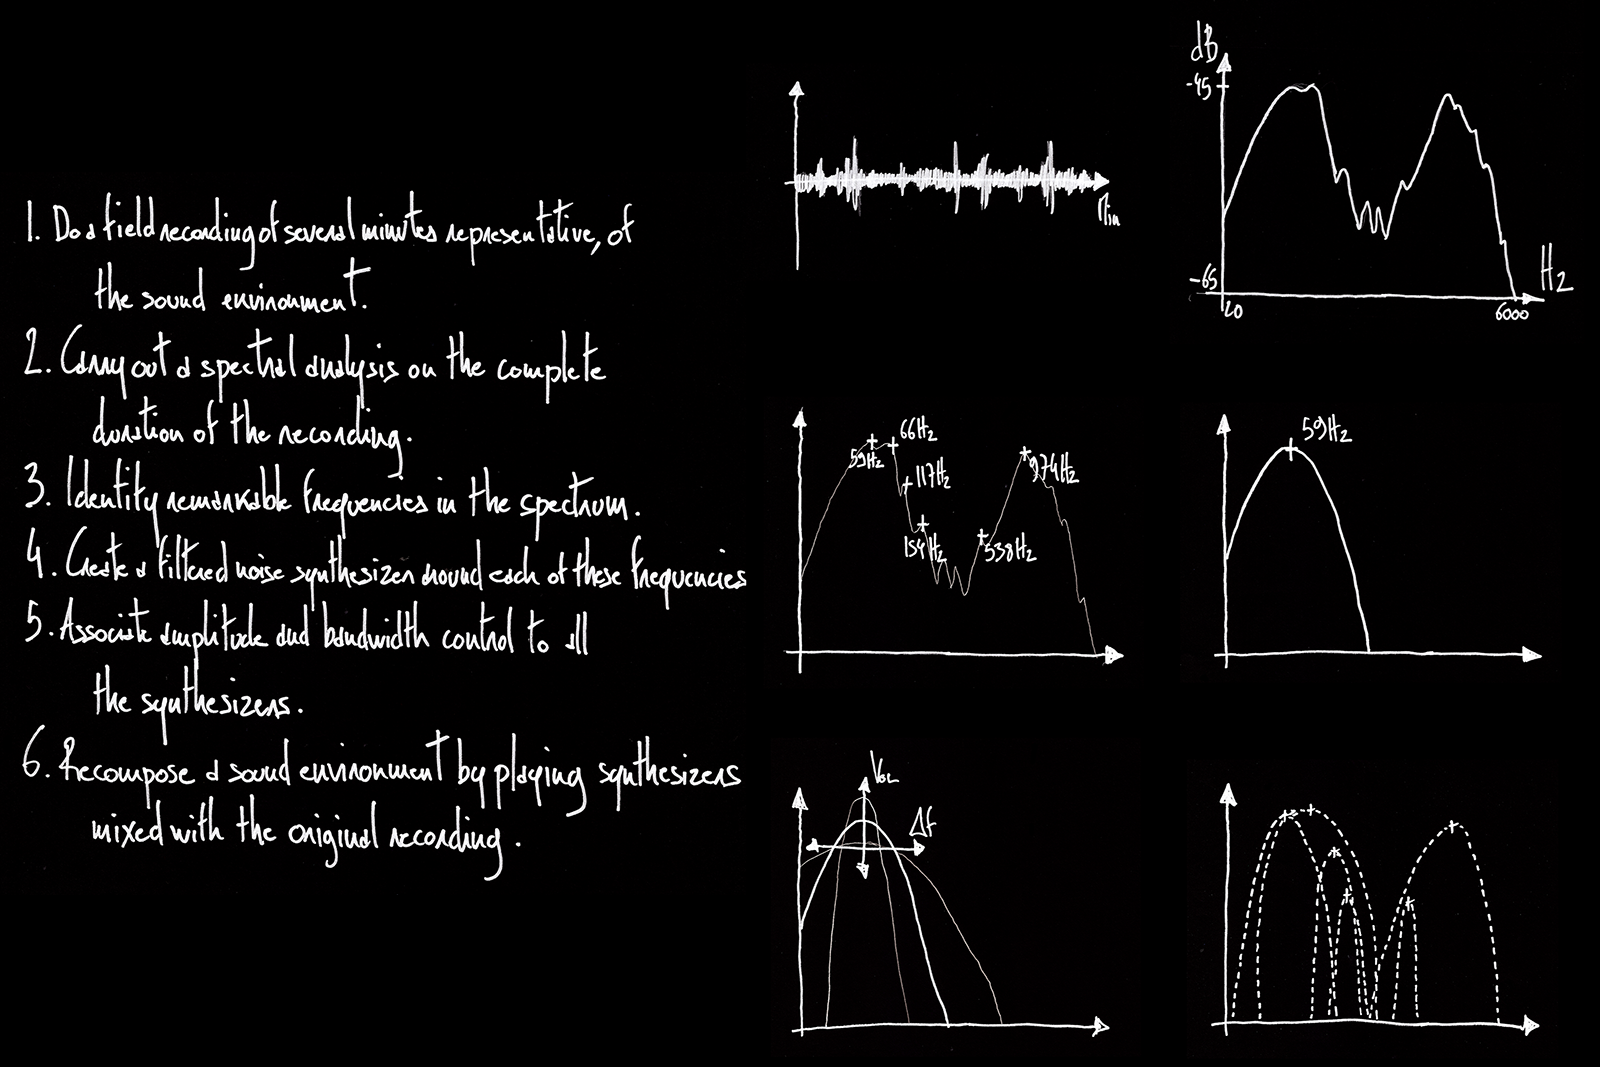 1. Do a field recording of several minutes representative, of
the sound environment.
2. Carry out a spectral analysis on the complete
duration of the recording.
3. Identity remarkable frequencies in the spectrum.
4. Create a filtered noise synthesizer around each of these frequencies
5. Associate amplitude and bandwidth control to all
the synthesizers.
6. Recompose a sound environment by playing synthesizers
mixed with the original recording.
Min
dB
-45
-65
20
6000
Hz
59Hz
66Hz
117Hz
154Hz
538Hz
974Hz
59Hz
VOL
Δf